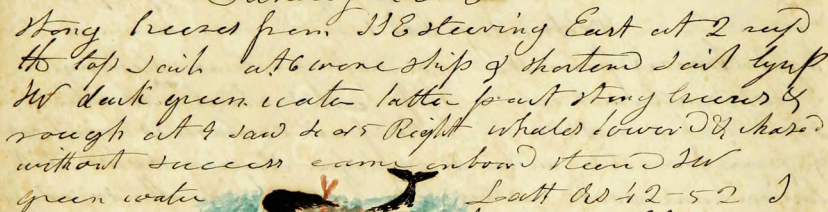 strong breezes from SSE steering East at 2 reefd
the top sails at 6 wore ship & shortend sail
SW dark green water latter part strong breezes &
rough at 9 saw 4 or 5 Right whales lowerd & chased
without success came onboard steerd SW
green water Latt Obs 42-52 S